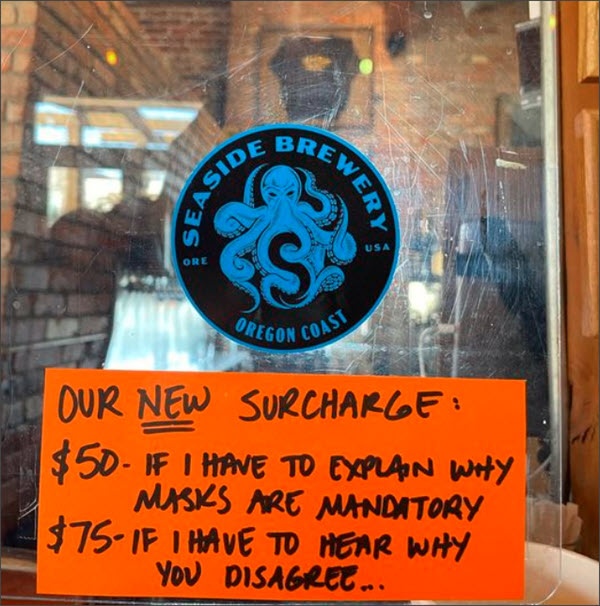 SEASIDE BREWERY
ORE
USA
S
OREGON COAST
OUR NEW SURCHARGE:
$50- IF I HAVE TO EXPLAIN WHY
MASKS ARE MANDATORY
$75- IF I HAVE TO HEAR WHY
YOU DISAGREE...